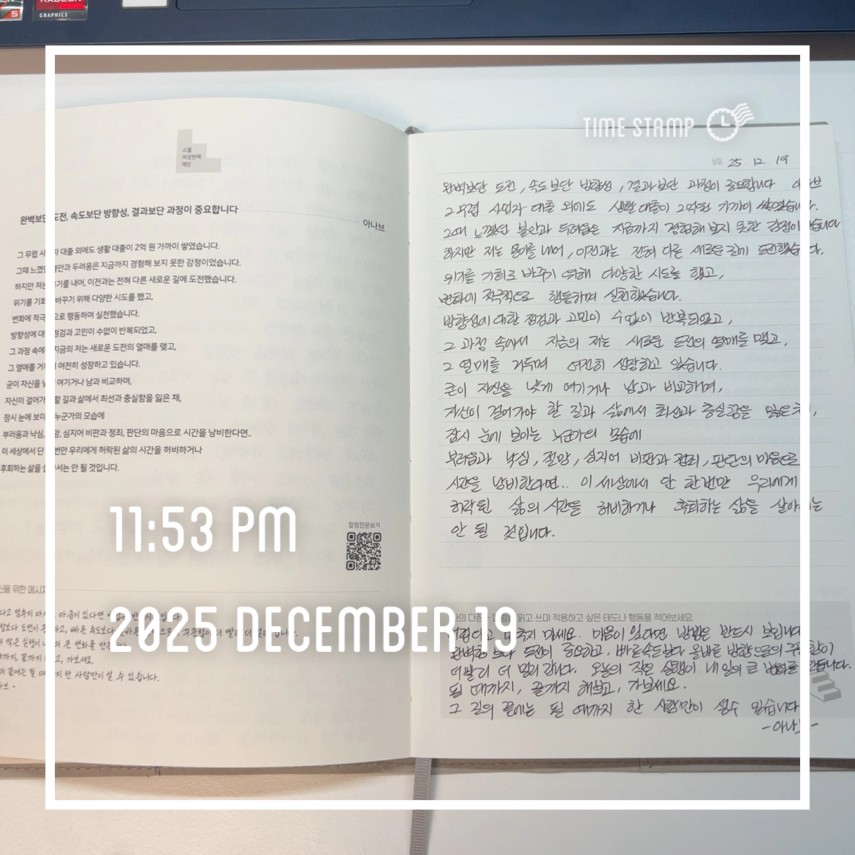 RADEON
GRAPHICS
TIME STAMP
스물
여섯번째
계단
완벽보단 도전, 속도보단 방향성, 결과보단 과정이 중요합니다
아나브
그 무렵 사 자 대출 외에도 생활 대출이 2억 원 가까이 쌓였습니다.
그때 느꼈 불안과 두려움은 지금까지 경험해 보지 못한 감정이었습니다.
하지만 저는 기를 내어, 이전과는 전혀 다른 새로운 길에 도전했습니다.
위기를 기회 바꾸기 위해 다양한 시도를 했고,
변화에 적극 으로 행동하며 실천했습니다.
방향성에 대 점검과 고민이 수없이 반복되었고,
그 과정 속에 지금의 저는 새로운 도전의 열매를 맺고,
그 열매를 거 여전히 성장하고 있습니다.
굳이 자신을 낮 여기거나 남과 비교하며,
자신이 걸어가 할 길과 삶에서 최선과 충실함을 잃은 채,
잠시 눈에 보이 누군가의 모습에
부러움과 낙심, 망, 심지어 비판과 정죄, 판단의 마음으로 시간을 낭비한다면..
이 세상에서 단 번만 우리에게 허락된 삶의 시간을 허비하거나
후회하는 삶을 살 서는 안 될 것입니다.
칼럼전문보기
신을 위한 메시지
날짜 25 12 19
완벽보단 도전, 속도보단 방향성, 결과보단 과정이 중요합니다 아나브
그 무렵 사업자 대출 외에도 생활 대출이 2억원 가까이 쌓였습니다.
그때 느꼈던 불안과 두려움은 지금까지 경험해 보지 못한 감정이었습니다
하지만 저는 용기를 내어, 이전과는 전혀 다른 새로운 길에 도전했습니다.
위기를 기회로 바꾸기 위해 다양한 시도를 했고,
변화에 적극적으로 행동하며 실천했습니다.
방향성에 대한 점검과 고민이 수없이 반복되었고,
그 과정 속에서 지금의 저는 새로운 도전의 열매를 맺고,
그 열매를 거두며 여전히 성장하고 있습니다.
굳이 자신을 낮게 여기거나 남과 비교하며,
자신이 걸어가야 할 길과 삶에서 최선과 충실함을 잃은 채,
잠시 눈에 보이는 누군가의 모습에
부러움과 낙심, 절망, 심지어 비판과 정죄, 판단의 마음으로
시간을 낭비한다면.. 이 세상에서 단 한번만 우리에게
허락된 삶의 시간을 허비하거나 후회하는 삶을 살아 는
안 될 것입니다.
읽고 쓰며 적용하고 싶은 태도나 행동을 적어보세요.
멈추지 마세요. 마음이 있다면 방법은 반드시 보입니다
완벽함보다 도전이 중요하고, 빠른 속도보다 올바른 방향으로의 꾸준함이
더 빨리 더 멀리 갑니다. 오늘의 작은 실행이 내일의 큰 변화를 만듭니다.
될 때까지, 끝까지 해보고, 가보세요.
그 길의 끝에는 될 때까지 한 사람만이 설 수 있습니다
-아나브-
11:53 PM
2025 DECEMBER 19